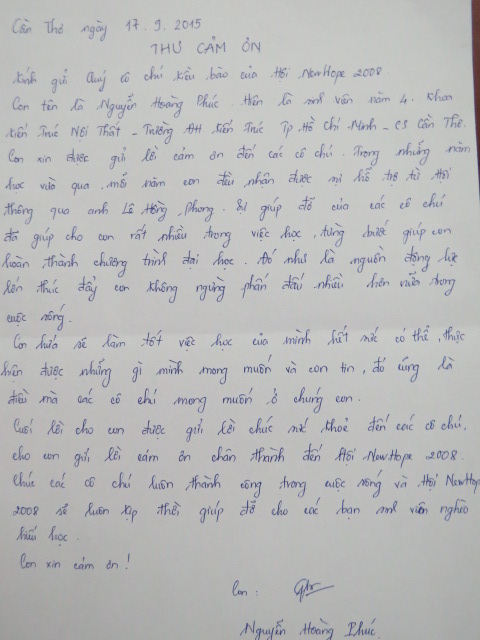 Cần Thơ ngày 17.9.2015
THƯ CẢM ƠN
Kính gửi Quý cô chú kiều bào của Hội NewHope 2008.
Con tên là Nguyễn Hoàng Phúc. Hiện là sinh viên năm 4. Khoa
Kiến Trúc Nội Thất - Trường ĐH Kiến Trúc Tp Hồ Chí Minh - CS Cần Thơ.
Con xin được gửi lời cám ơn đến các cô chú. Trong những năm
học vừa qua, mỗi năm con đều nhận được sự hỗ trợ từ Hội
thông qua anh Lê Hồng Phong. Sự giúp đỡ của các cô chú
đã giúp cho con rất nhiều trong việc học, từng bước giúp con
hoàn thành chương trình đại học. Đó như là nguồn động lực
lớn thúc đẩy con không ngừng phấn đấu nhiều hơn nữa trong
cuộc sống.
Con hứa sẽ làm tốt việc học của mình hết sức có thể, thực
hiện được những gì mình mong muốn và con tin, đó cũng là
điều mà các cô chú mong muốn ở chúng con.
Cuối lời cho con được gửi lời chúc sức khoẻ đến các cô chú,
cho con gửi lời cám ơn chân thành đến Hội NewHope 2008.
Chúc các cô chú luôn thành công trong cuộc sống và Hội NewHope
2008 sẽ luôn kịp thời giúp đỡ cho các bạn sinh viên nghèo
hiếu học.
Con xin cám ơn!
Con:
Nguyễn Hoàng Phúc.